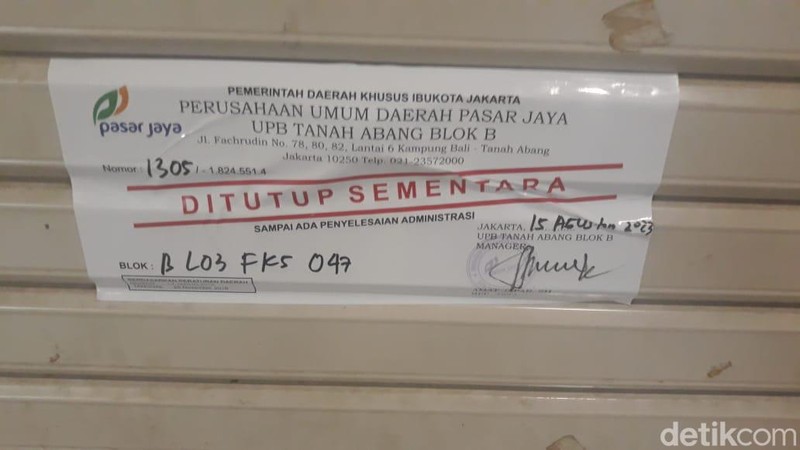 pasar jaya
PEMERINTAH DAERAH KHUSUS IBUKOTA JAKARTA
PERUSAHAAN UMUM DAERAH PASAR JAYA
UPB TANAH ABANG BLOK B
Jl. Fachrudin No. 78, 80, 82, Lantai 6 Kampung Bali - Tanah Abang
Jakarta 10250 Telp. 021-23572000
Nomor : 1305 / - 1.824.551.4
DITUTUP SEMENTARA
SAMPAI ADA PENYELESAIAN ADMINISTRASI
JAKARTA, 15 Agustus 2023
UPB TANAH ABANG BLOK B
MANAGER
BLOK : B L03 FKS 047
BERDASARKAN PERATURAN DAERAH
detikcom